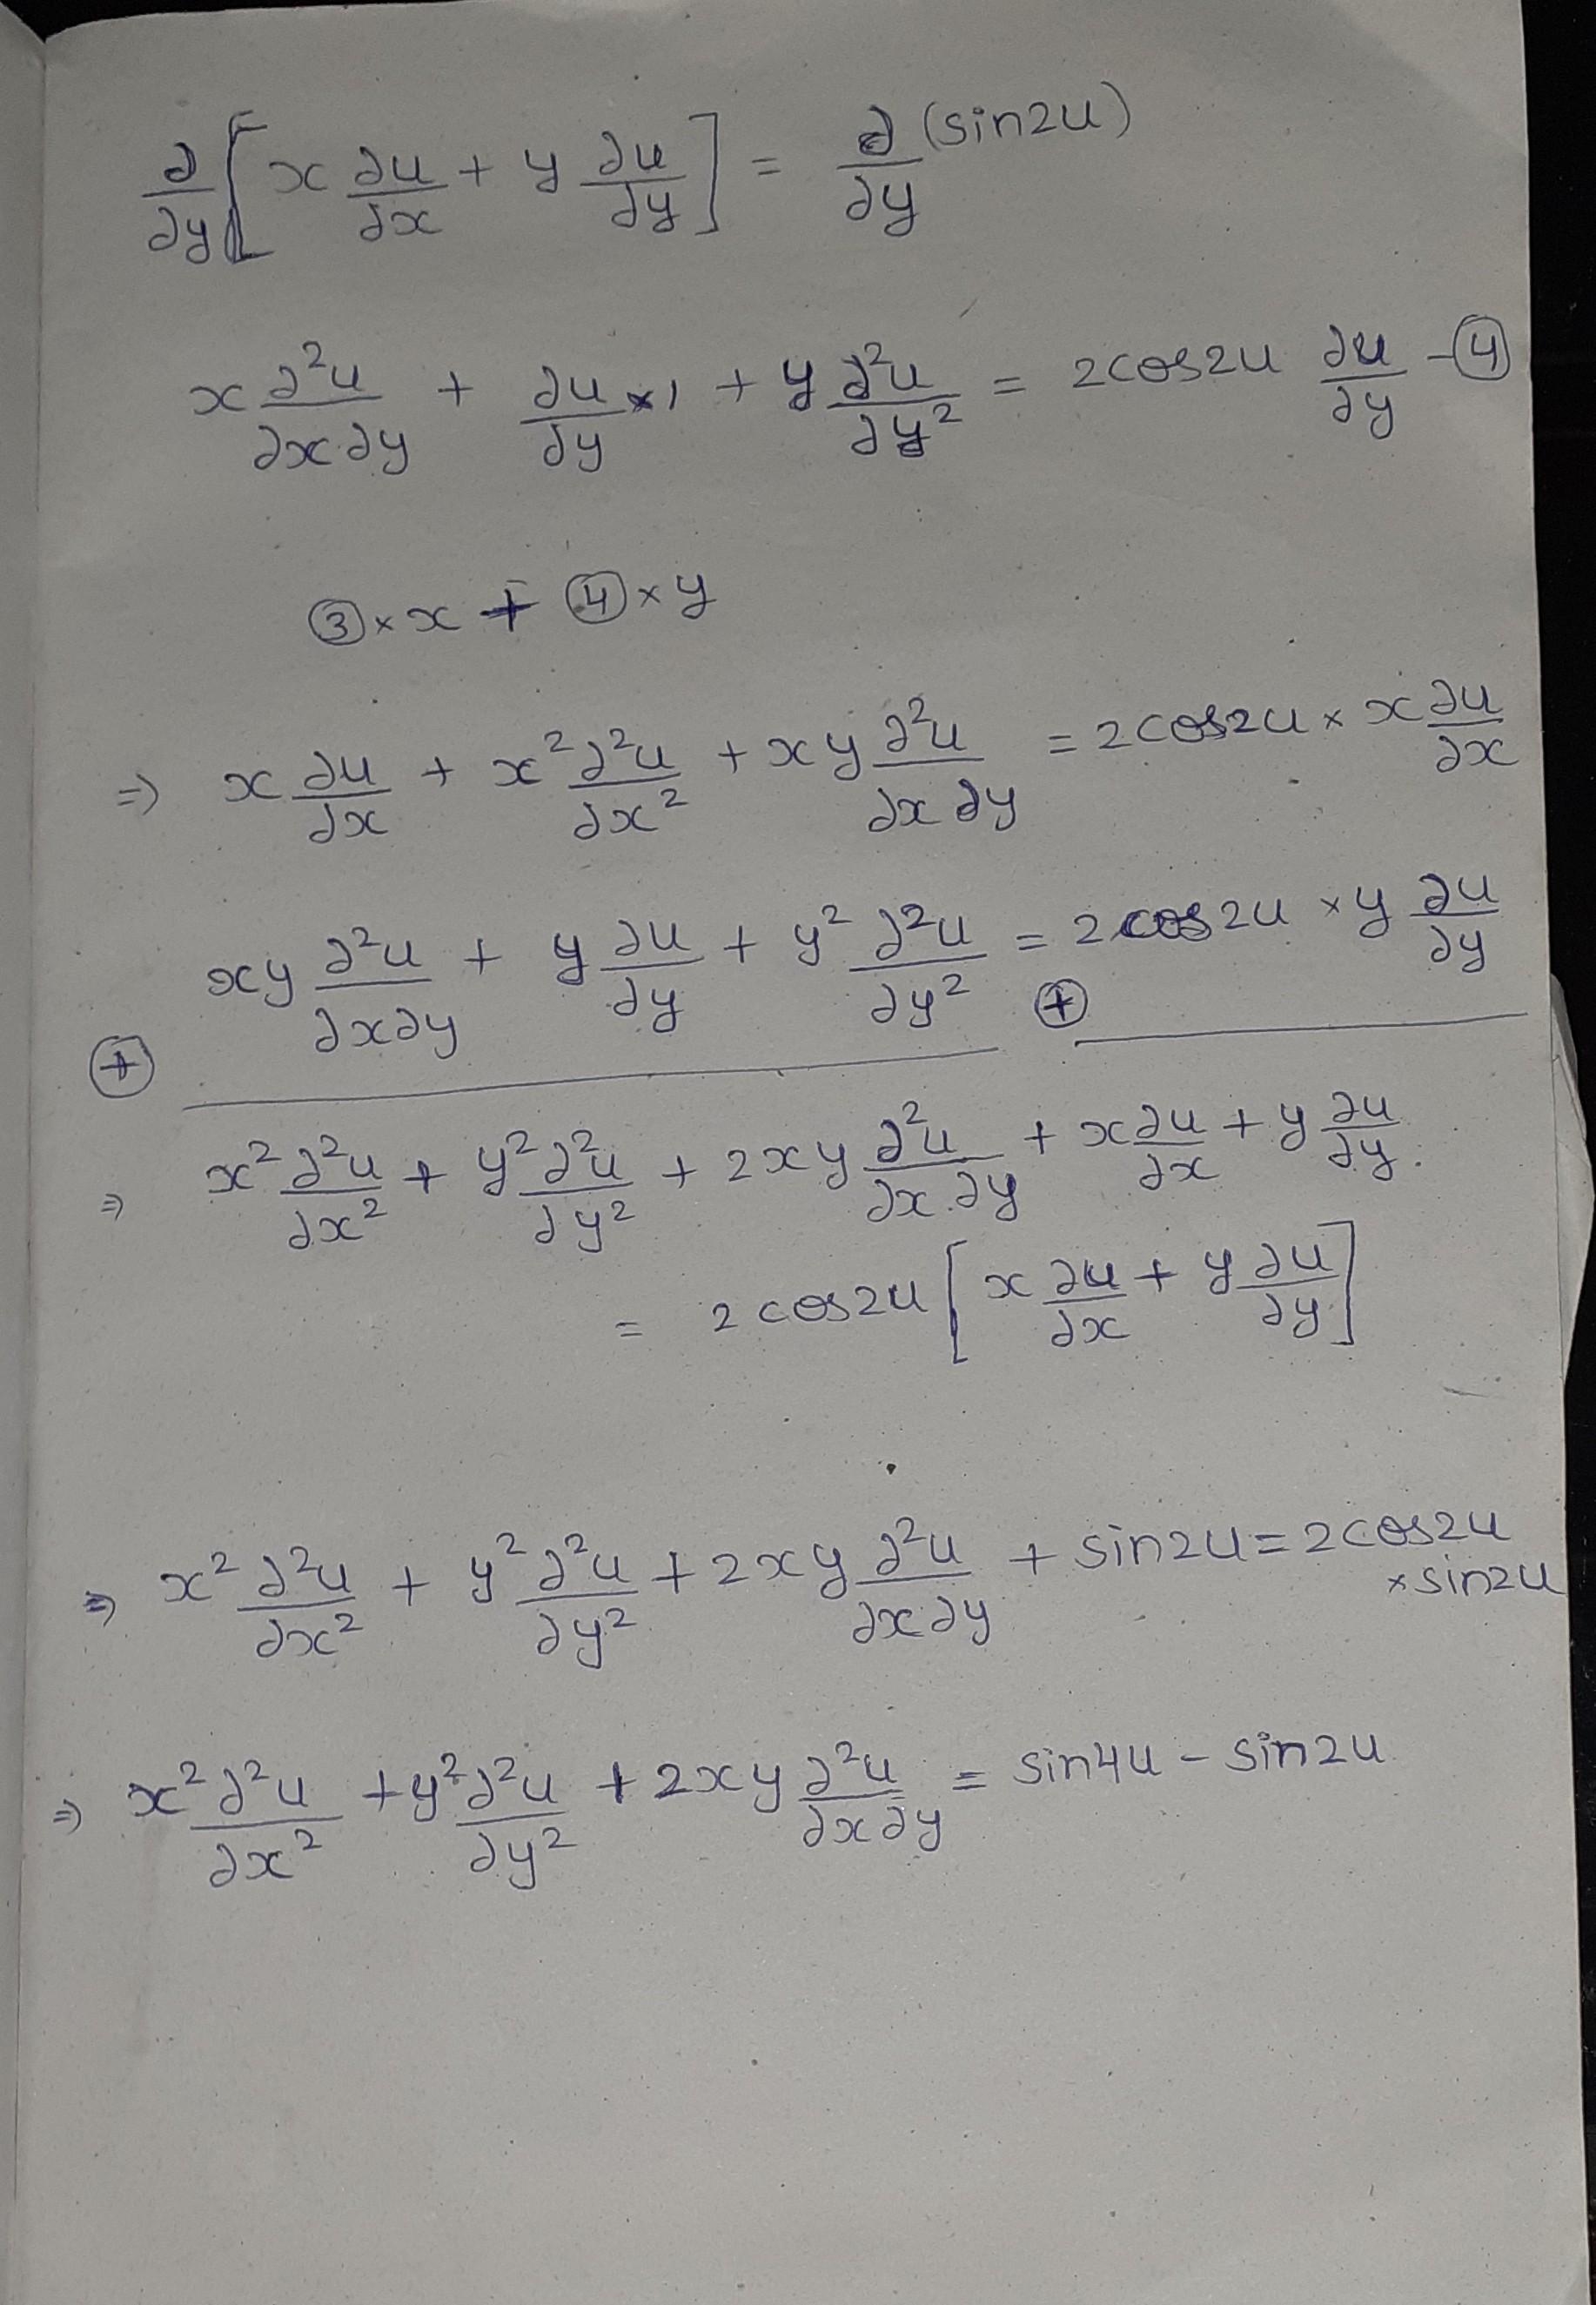 ∂/∂y [x ∂u/∂x + y ∂u/∂y] = ∂/∂y (sin2u)
x ∂²u/∂x∂y + ∂u/∂y ×1 + y ∂²u/∂y² = 2cos2u ∂u/∂y - ④
③×x + ④×y
⇒ x ∂u/∂x + x² ∂²u/∂x² + xy ∂²u/∂x∂y = 2cos2u × x ∂u/∂x
xy ∂²u/∂x∂y + y ∂u/∂y + y² ∂²u/∂y² = 2cos2u × y ∂u/∂y
⊕ ⊕
⇒ x² ∂²u/∂x² + y² ∂²u/∂y² + 2xy ∂²u/∂x∂y + x ∂u/∂x + y ∂u/∂y
= 2cos2u [x ∂u/∂x + y ∂u/∂y]
⇒ x² ∂²u/∂x² + y² ∂²u/∂y² + 2xy ∂²u/∂x∂y + sin2u = 2cos2u
×sin2u
⇒ x² ∂²u/∂x² + y² ∂²u/∂y² + 2xy ∂²u/∂x∂y = sin4u - sin2u